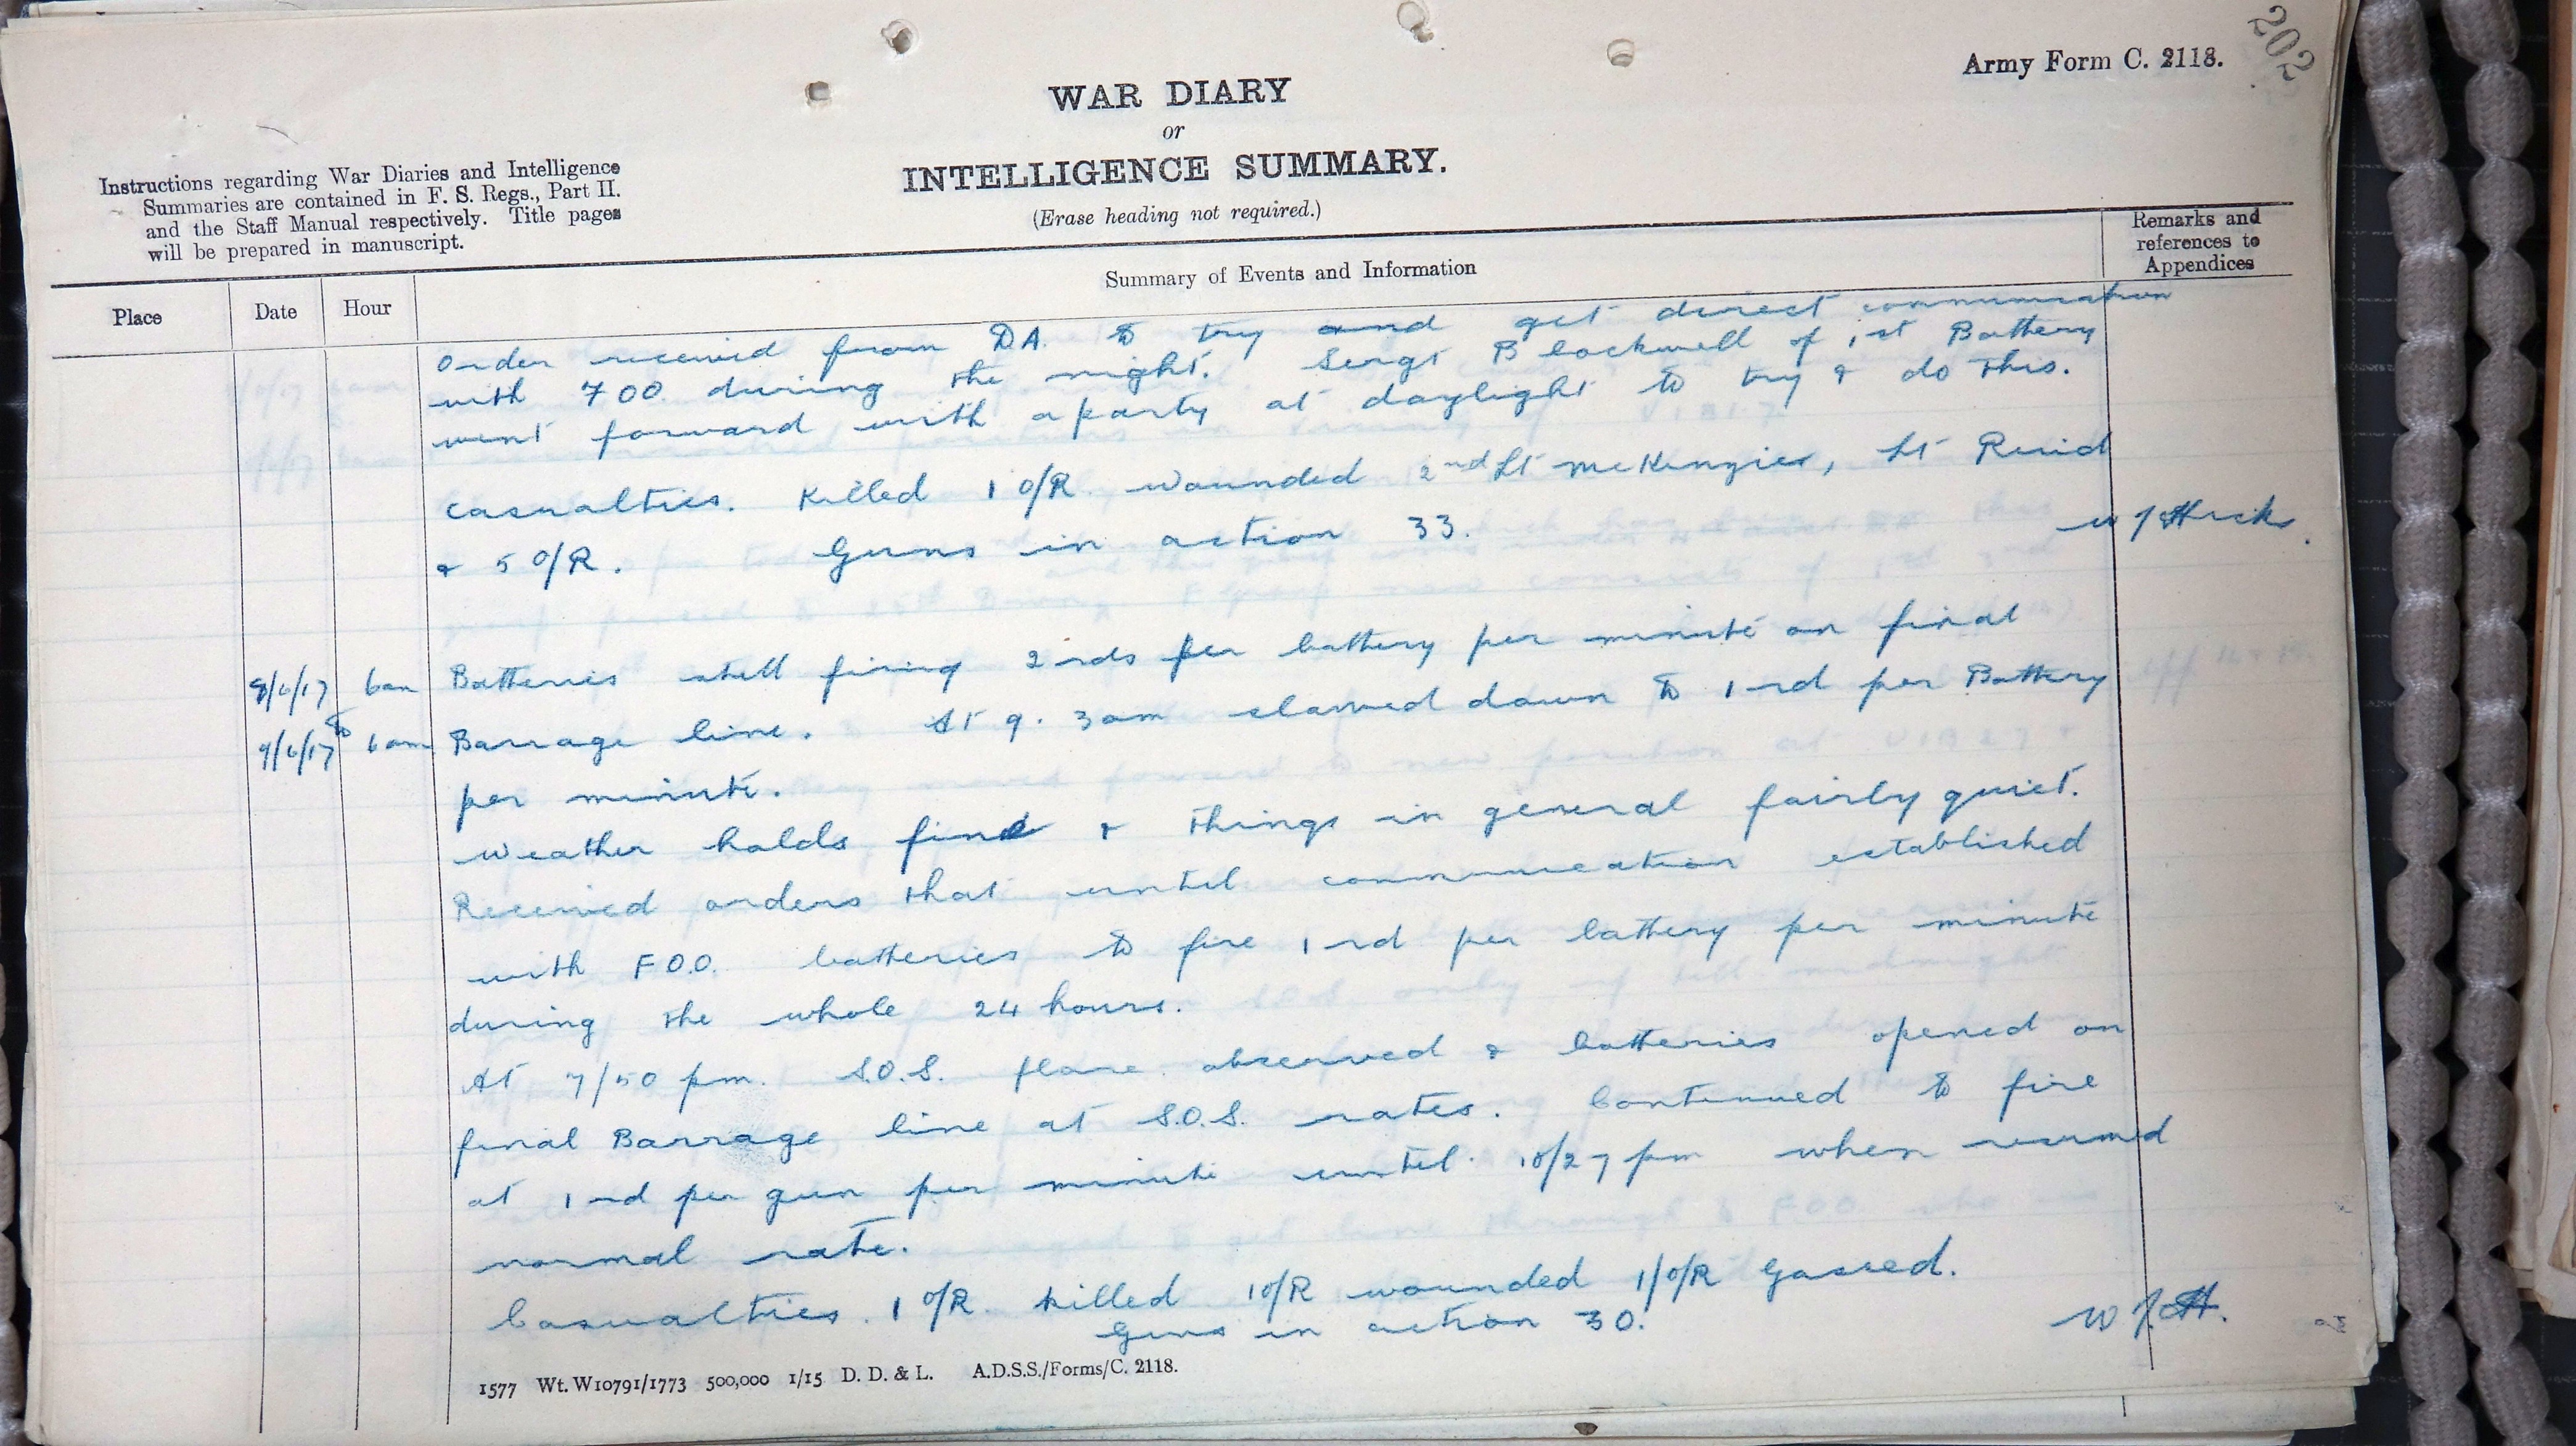 202
Army Form C. 2118.
WAR DIARY
or
INTELLIGENCE SUMMARY.
(Erase heading not required.)
Instructions regarding War Diaries and Intelligence
Summaries are contained in F. S. Regs., Part II.
and the Staff Manual respectively. Title pages
will be prepared in manuscript.
Place
Date
Hour
Summary of Events and Information
Remarks and
references to
Appendices
Order received from DA. to try and get direct communication
with 700 during the night. Sergt Blockwell of 1st Battery
went forward with a party at daylight to try & do this.
Casualties. Killed 1 O/R wounded 2nd Lt McKenzie, Lt Reid
& 5 O/R. Guns in action 33.
8/6/17 6am Batteries still firing 2 rds per battery per minute on final
to
9/6/17 6am Barrage line. At 9. 3am slowed down to 1 rd per Battery
per minute.
Weather holds fine & things in general fairly quiet.
Received orders that until communication established
with F.O.O. batteries to fire 1 rd per battery per minute
during the whole 24 hours.
At 7/50 pm. S.O.S. flare observed & batteries opened on
final Barrage line at S.O.S. rates. Continued to fire
at 1 rd per gun per minute until 10/27 pm when resumed
normal rate.
Casualties. 1 O/R. killed 1 O/R wounded 1/O/R Gassed.
Guns in action 30.
1577 Wt. W10791/1773 500,000 1/15 D. D. & L. A.D.S.S./Forms/C. 2118.